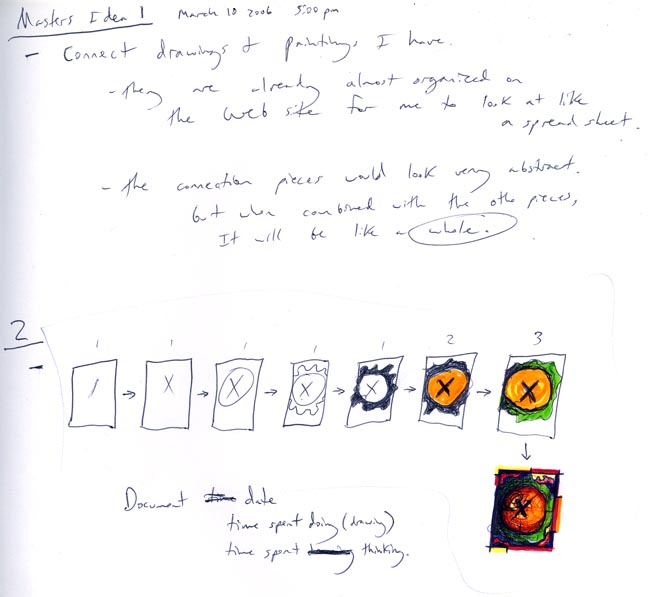 Masters Idea 1 March 10 2006 5:00 pm
- Connect drawings & paintings I have.
- They are already almost organized on
the web site for me to look at like
a spread sheet.
- the connection pieces would look very abstract.
but when combined with the othe pieces,
It will be like a whole.
2
-
1 1 1 1 1 2 3
Document date
time spent doing (drawing)
time spent thinking.